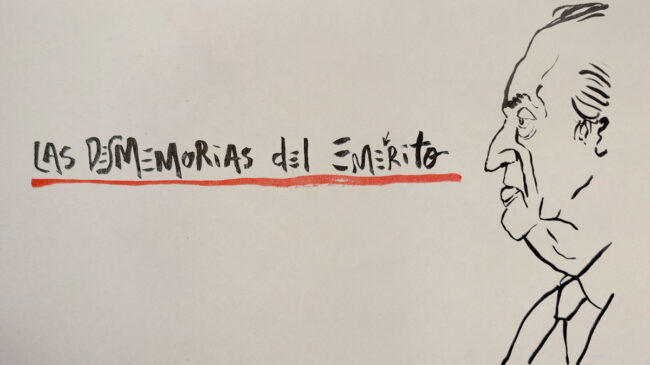 LAS DESMEMORiAS del EMÉRiTo